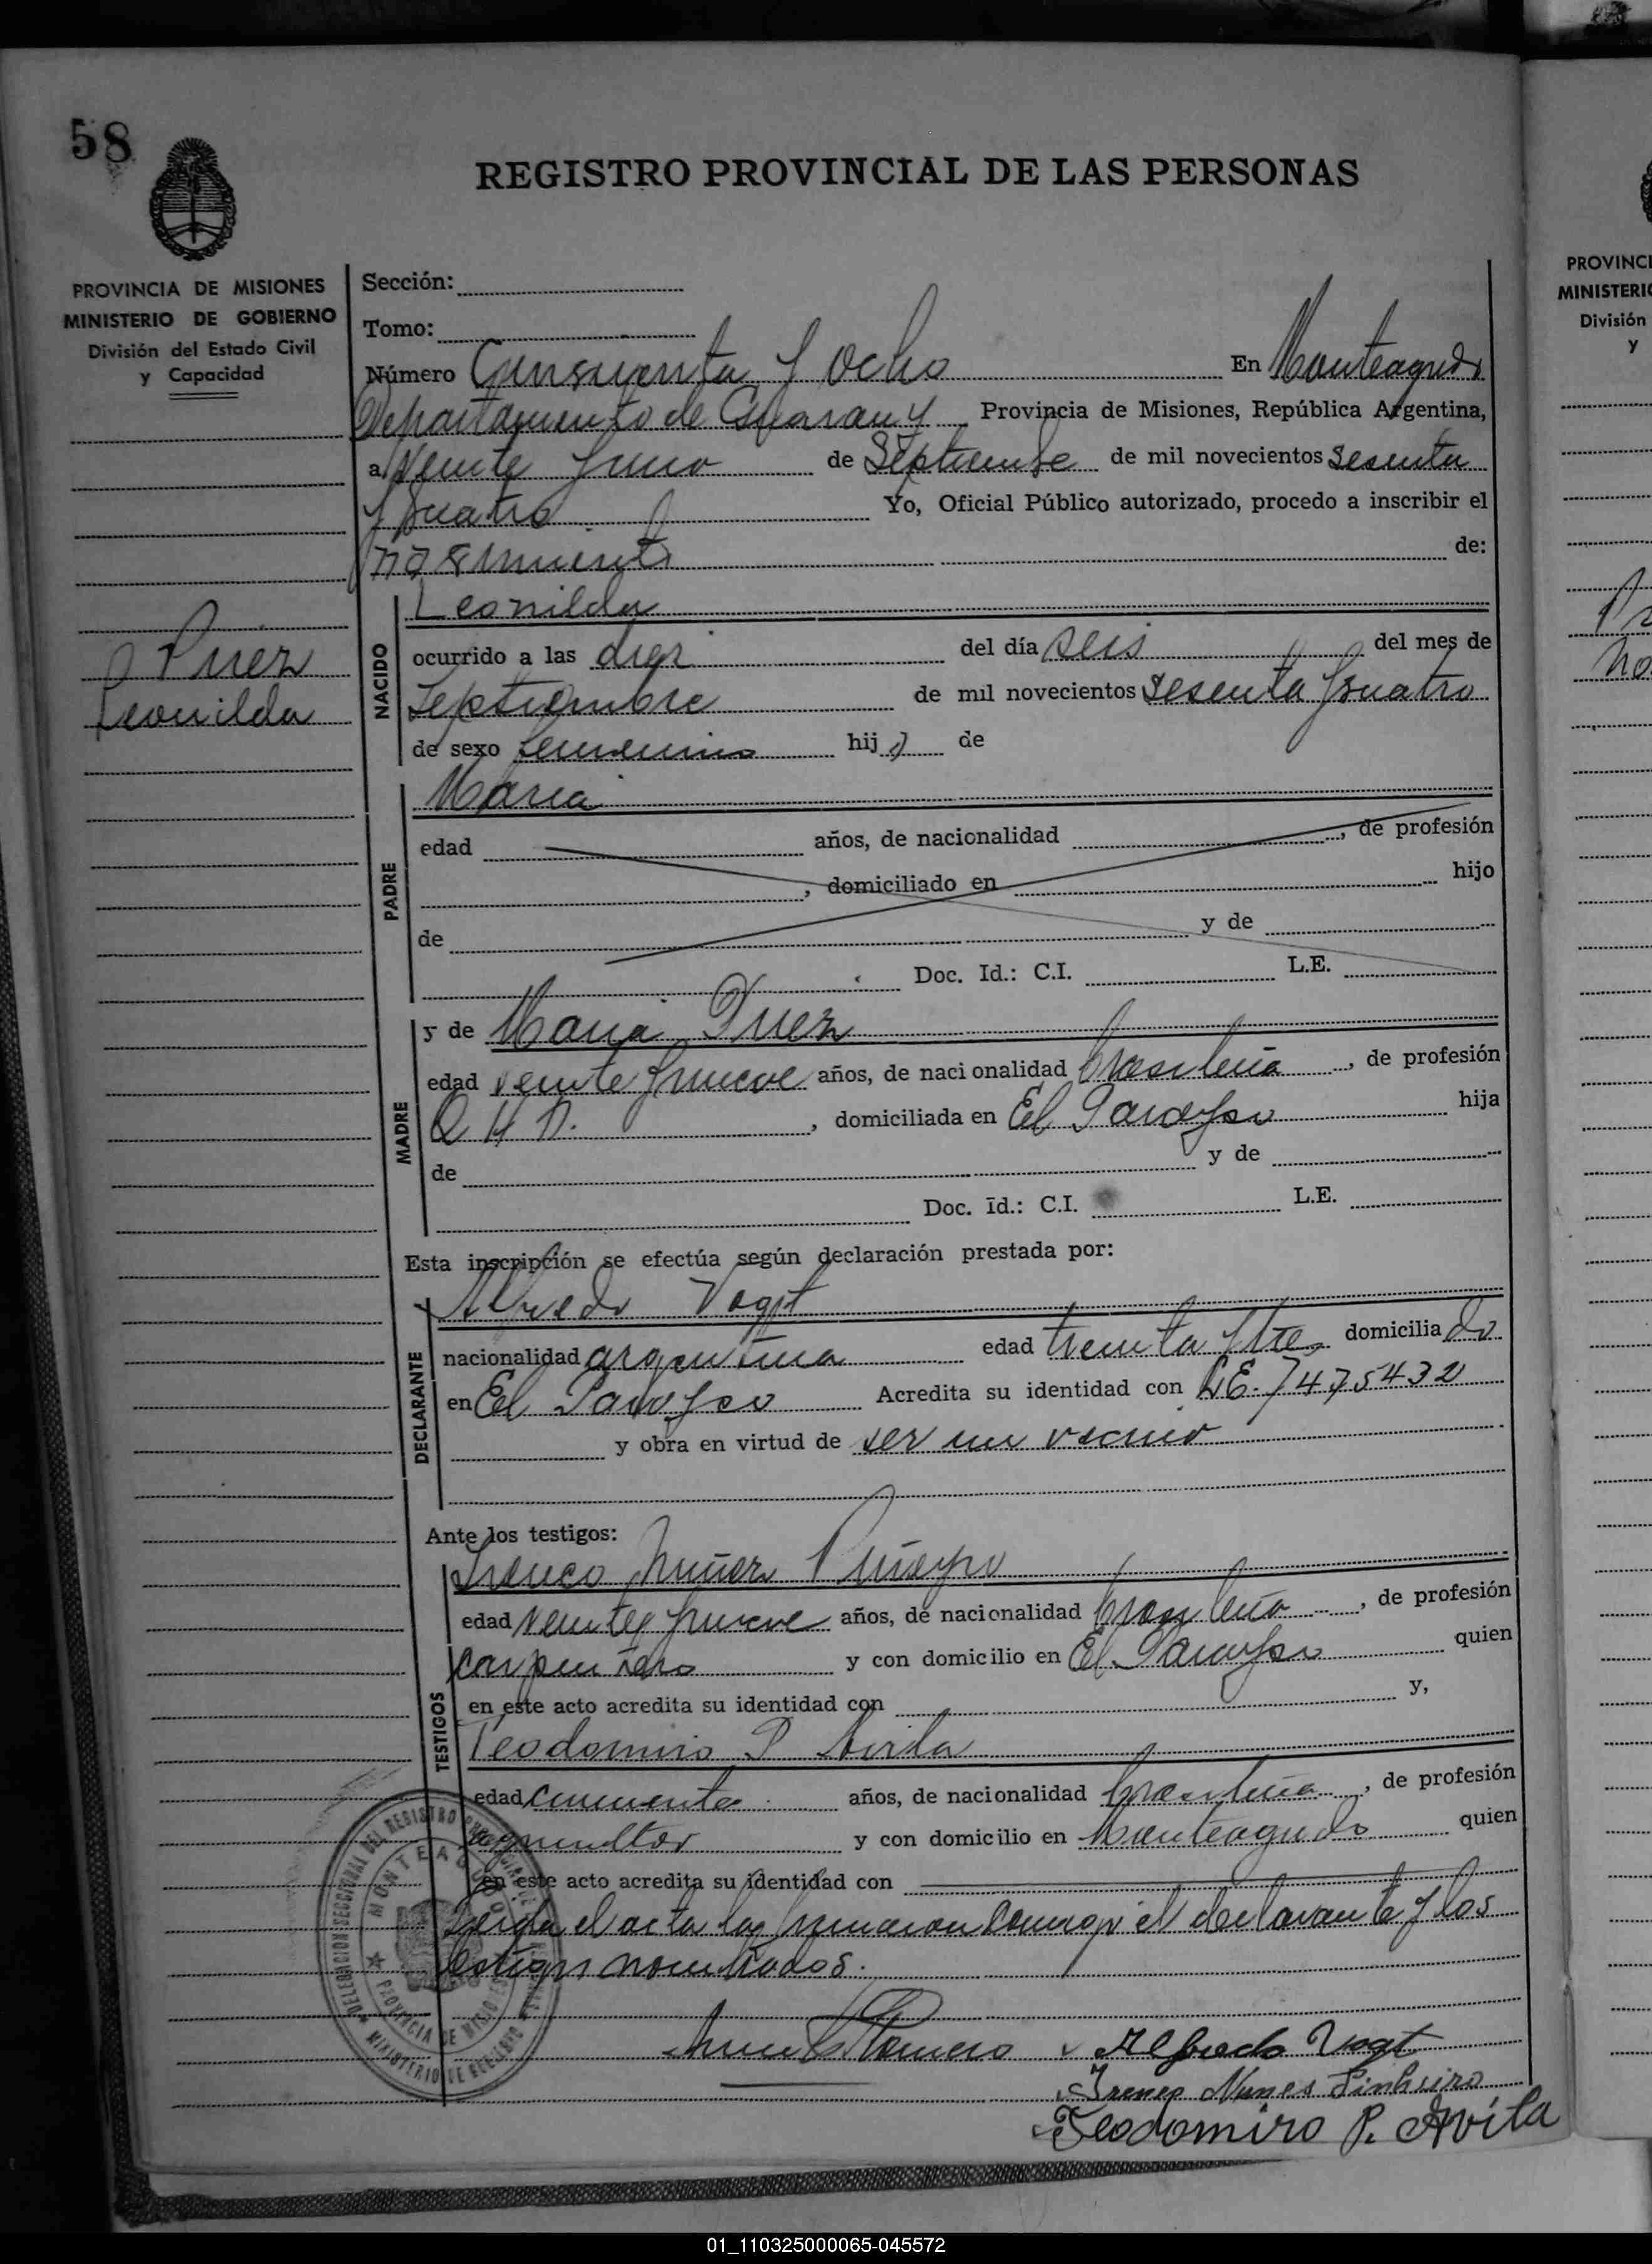 58
REGISTRO PROVINCIAL DE LAS PERSONAS
PROVINCIA DE MISIONES
MINISTERIO DE GOBIERNO
División del Estado Civil
y Capacidad
Sección:
Tomo:
Número Cinsuenta y ocho En Monteagudo
Departamento de Guarany Provincia de Misiones, República Argentina,
a veinte y uno de Septiembre de mil novecientos sesenta
y cuatro Yo, Oficial Público autorizado, procedo a inscribir el
nasimiento de:
Leonilda
Leonilda
NACIDO
ocurrido a las diez del día seis del mes de
Septiembre de mil novecientos sesenta y cuatro
de sexo femenino hij de
Maria
PADRE
edad años, de nacionalidad , de profesión
, domiciliado en hijo
de y de
Doc. Id.: C.I. L.E.
MADRE
y de Maria
edad veinte y nueve años, de nacionalidad brasileña , de profesión
Q H D. , domiciliada en El Parayso hija
de y de
Doc. Id.: C.I. L.E.
Esta inscripción se efectúa según declaración prestada por:
DECLARANTE
Alfredo Vogt
nacionalidad argentina edad treinta y tres domicilia do
en El Parayso Acredita su identidad con L.E. 7475432
y obra en virtud de ser un vecino
Ante los testigos:
TESTIGOS
Ireneo
edad veinte y nueve años, de nacionalidad brasileña , de profesión
carpintero y con domicilio en El Parayso quien
en este acto acredita su identidad con y,
Teodomiro P Avila
edad cincuenta años, de nacionalidad brasileña , de profesión
agricultor y con domicilio en Monteagudo quien
en este acto acredita su identidad con
Leida el acta la firmaron conmigo el declarante y los
testigos nombrados.
Alfredo Vogt
Ireneo Nunes Pinheiro
Teodomiro P. Avila
MONTEAGUDO
PROVINCIA DE MISIONES
PROVINCI
MINISTERIO
División
y
01_110325000065-045572